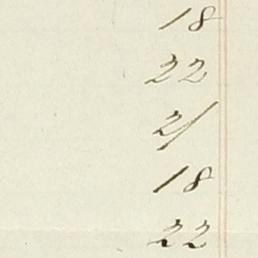 18
22
21
18
22